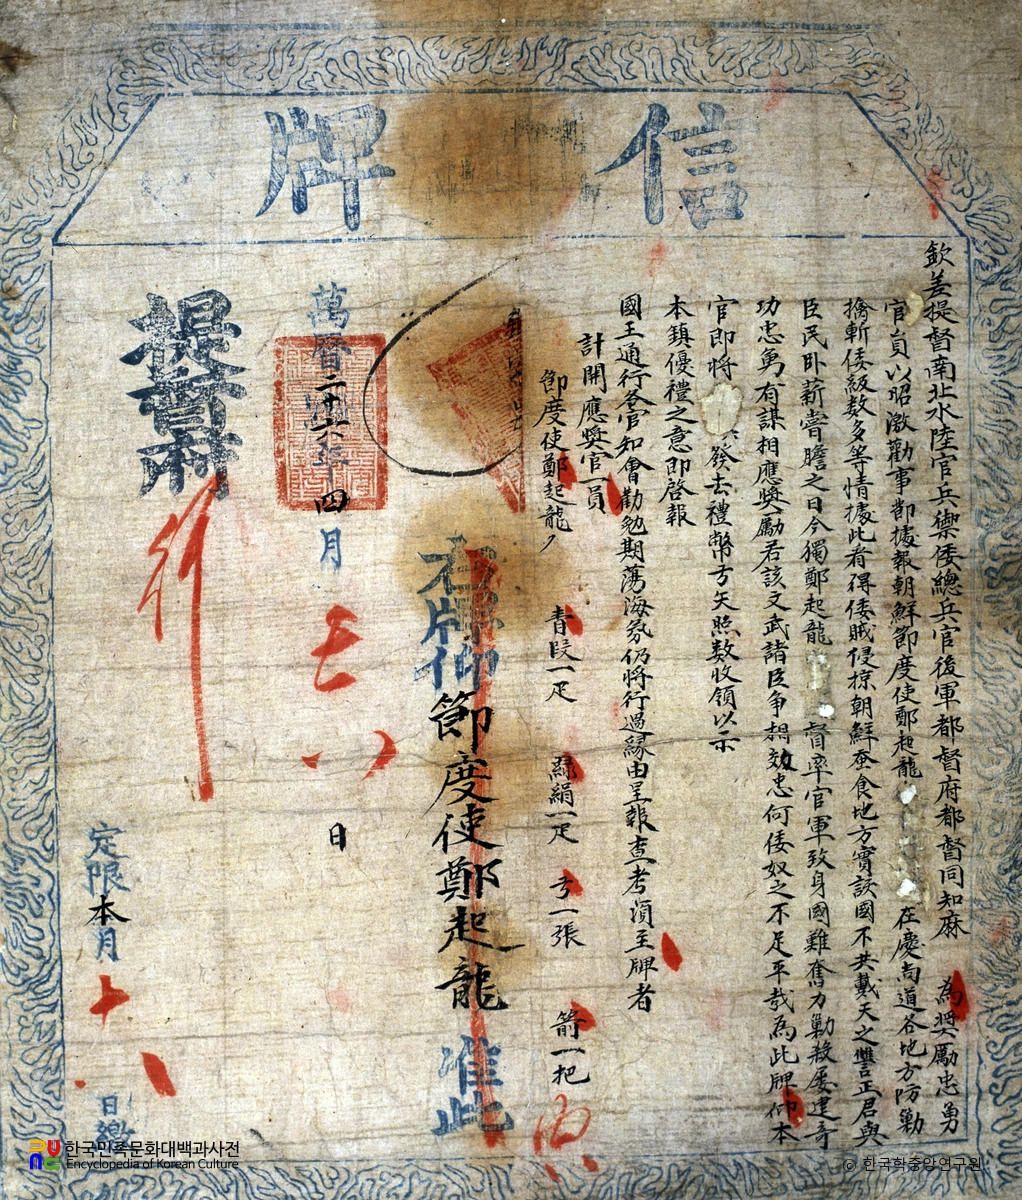 信牌
欽差提督南北水陸官兵禦倭總兵官後軍都督府都督同知麻 為奬勵忠勇
官員以昭激勸事節據報朝鮮節度使鄭起龍 在慶尙道各地方防勦
擒斬倭級數多等情據此看得倭賊侵掠朝鮮蚕食地方實該國不共戴天之讐正君與
臣民卧薪嘗膽之日今獨鄭起龍 督率官軍致身國難奮力勦殺屡建奇
功忠勇有謀相應奬勵若該文武諸臣爭相效忠何倭奴之不足平哉為此牌仰本
官即將 發去禮幣弓矢照数收領以示
本鎮優禮之意即啓報
國王通行各官知會勸勉期蕩海氛仍將行過緣由呈報查考湏至牌者
計開應奬官一員
節度使鄭起龍 青段一疋 綠絹一疋 弓一張 箭一把
右牌仰節度使鄭起龍 准此
萬曆二十六年四月 廿八 日
提督府
行
定限本月 十八 日繳
한국민족문화대백과사전
Encyclopedia of Korean Culture
© 한국학중앙연구원